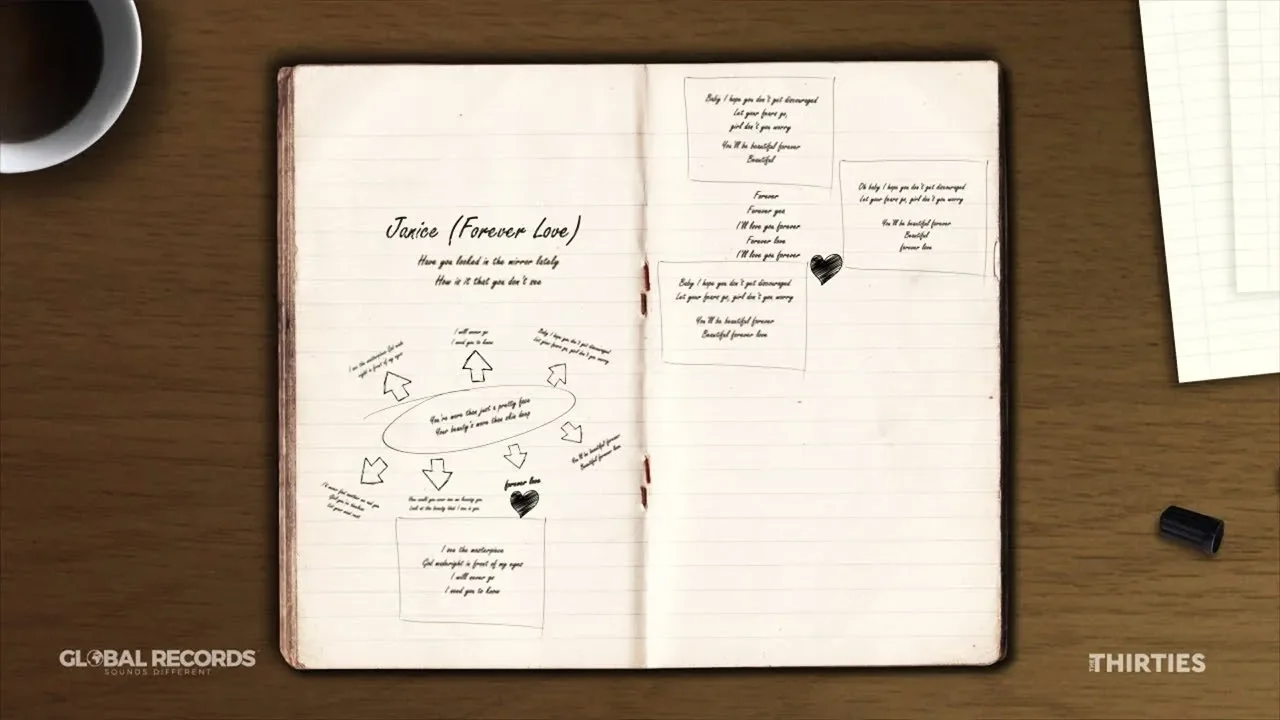 Janice (Forever Love)
Have you looked in the mirror lately
How is it that you don't see
I see the masterpiece God made
right a front of my eyes
I will never go
I need you to know
Baby I hope you don't get discouraged
Let your fears go, girl don't you worry
You're more then just a pretty face
Your beauty's more then skin deep
You'll be beautiful forever
Beautiful forever love
God you're
Let your
How could you ever see no beauty you
Look at the beauty that I see in you
forever love
I see the masterpiece
God maderight in front of my eyes
I will never go
I need you to know
Baby I hope you don't get discouraged
Let your fears go,
girl don't you worry
You'll be beautiful forever
Beautiful
Forever
Forever yea
I'll love you forever
Forever love
I'll love you forever
Oh baby I hope you don't get discouraged
Let your fears go, girl don't you worry
You'll be beautiful forever
Beautiful
forever love
Baby I hope you don't get discouraged
Let your fears go, girl don't you worry
You'll be beautiful forever
Beautiful forever love
GLOBAL RECORDS
SOUNDS DIFFERENT
THE THIRTIES